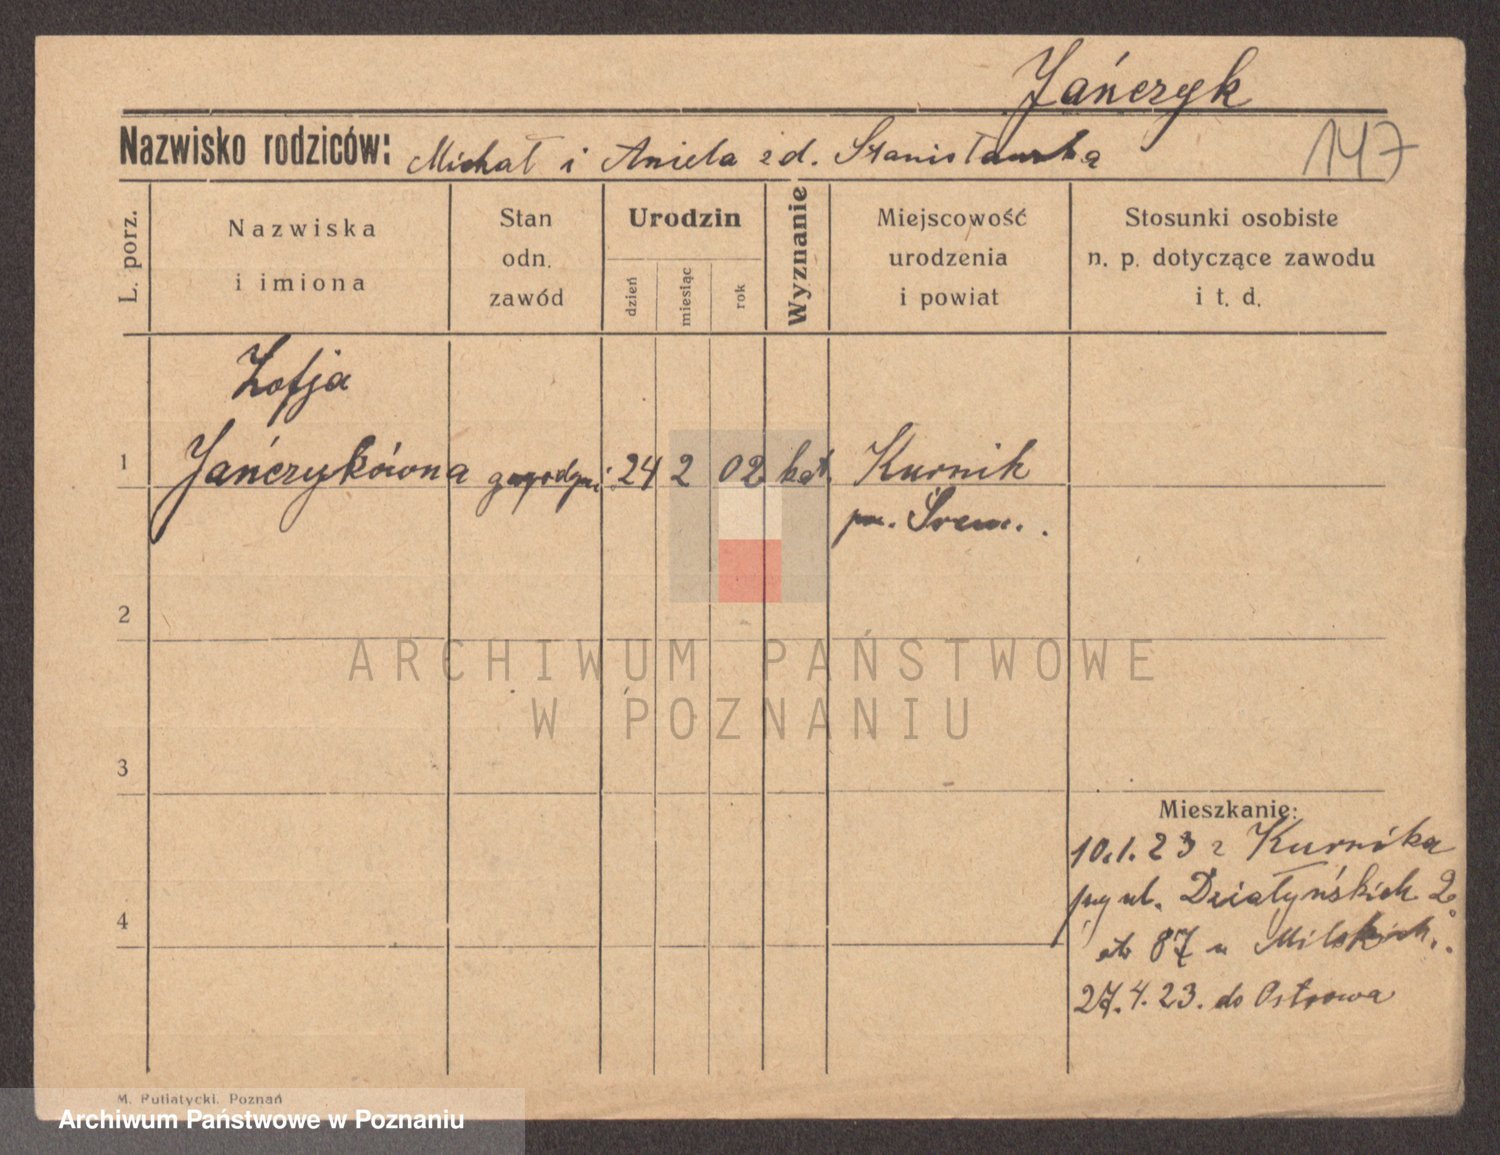 Jańczyk
147
Nazwisko rodziców: Michał i Aniela zd. Stanisławska
L. porz.
Nazwiska
i imiona
Stan
odn.
zawód
Urodzin
dzień
miesiąc
rok
Wyznanie
Miejscowość
urodzenia
i powiat
Stosunki osobiste
n. p. dotyczące zawodu
i t. d.
Zofja
1 Jańczykówna 24 2 02 kat. Kurnik
pw. Śrem.
2
ARCHIWUM PAŃSTWOWE
W POZNANIU
3
Mieszkanie:
10.1.23 z Kurnika
ul. Działyńskich 2
87 u
4
27.4.23. do Ostrowa
M. Putiatycki, Poznań
Archiwum Państwowe w Poznaniu